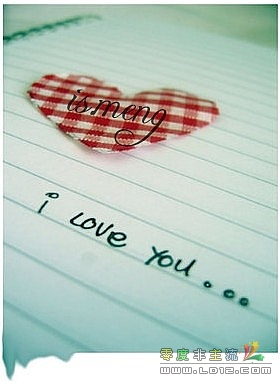 ismeng
i LOVE YOU...
零度非主流
www.LD12.com